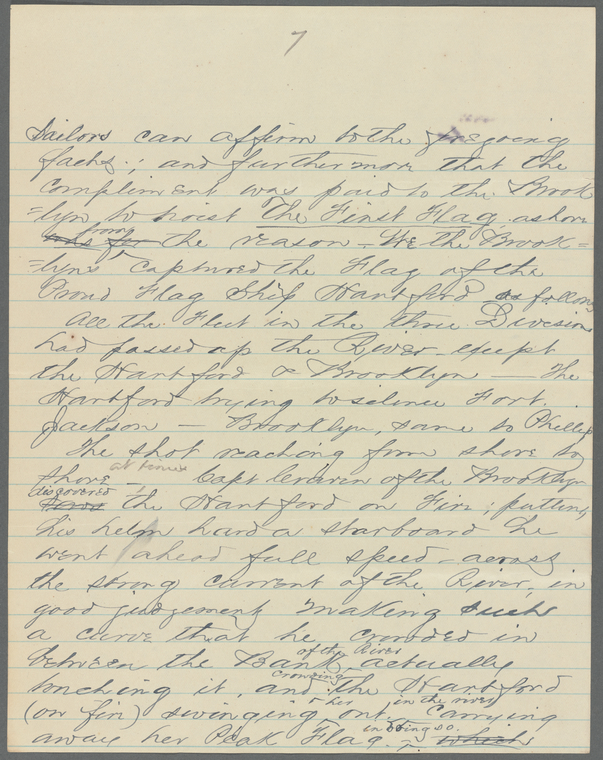 7
Sailors can affirm to the foregoing
facts; and furthermore that the
compliment was paid to the Brook
=lyn, to hoist The First Flag ashore
from the reason - We the Brook=
=lyn's captured the Flag of the
Proud Flag Ship Hartford as follows
All the Fleet in the three Divisions
had passed up the River - except
the Hartford & Brooklyn - The
Hartford trying to silence Fort
Jackson - Brooklyn, same to Phillip
The shot reaching from shore to
shore - at times Capt Craven of the Brooklyn
discovered the Hartford on Fire, putting
his helm hard a starboard he
went ahead full speed - across
the strong current of the River, in
good judgement making such
a curve that he crowded in
between the Bank of the River actually
touching it, and crowding the Hartford
(on fire) swinging her out in the river Carrying
away her Peak Flag. in doing so. which